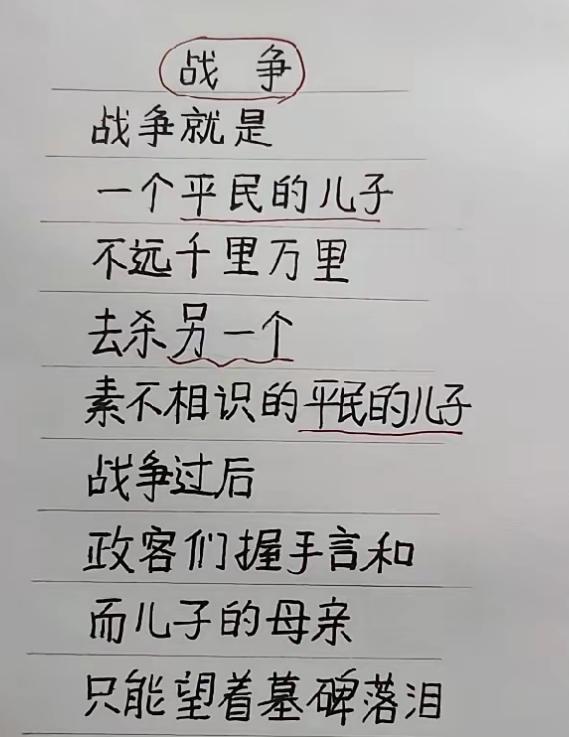 战 争
战争就是
一个平民的儿子
不远千里万里
去杀另一个
素不相识的平民的儿子
战争过后
政客们握手言和
而儿子的母亲
只能望着墓碑落泪